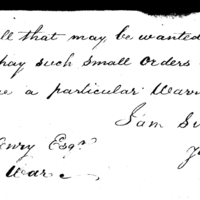 ll that may be wanted
pay such small orders
e a particular Warr
I am S
enry Esqr
War